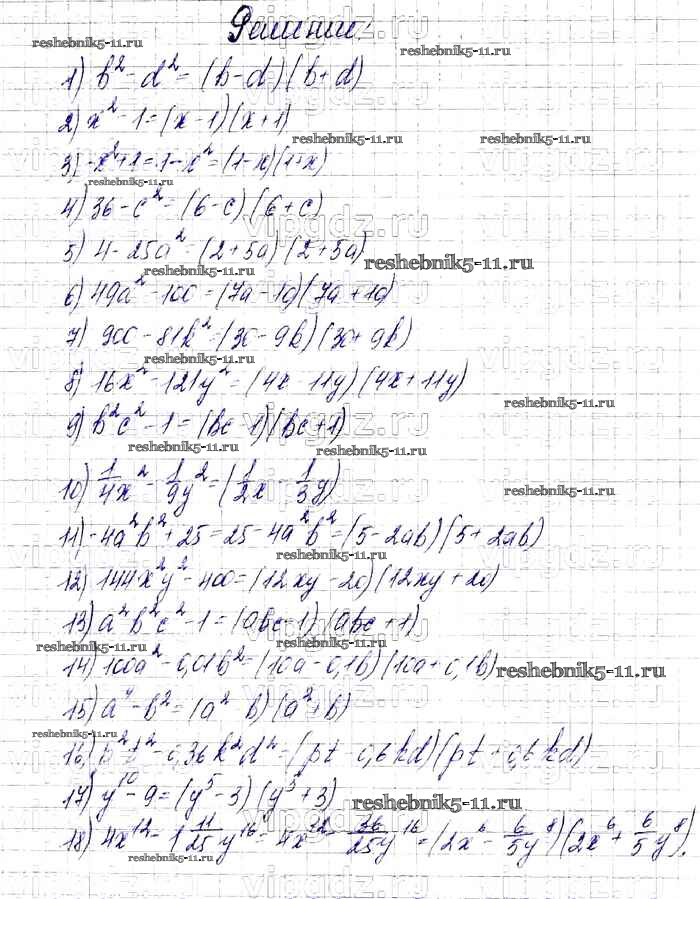 Решение:
reshebnik5-11.ru
reshebnik5-11.ru
1) b² - d² = (b-d)(b+d)
2) x² - 1 = (x-1)(x+1)
reshebnik5-11.ru
3) -x²+1 = 1-x² = (1-x)(1+x)
reshebnik5-11.ru
4) 36 - c² = (6-c)(6+c)
vipgdz.ru
5) 4 - 25a² = (2+5a)(2+5a)
reshebnik5-11.ru
reshebnik5-11.ru
6) 49a² - 100 = (7a-10)(7a+10)
7) 900 - 81k² = (30-9k)(30+9k)
vipgdz.ru
reshebnik5-11.ru
8) 16x² - 121y² = (4x-11y)(4x+11y)
reshebnik5-11.ru
9) b²c² - 1 = (bc-1)(bc+1)
reshebnik5-11.ru
10) 1/4x² - 1/9y² = (1/2x - 1/3y)
11) -4a²b² + 25 = 25 - 4a²b² = (5-2ab)(5+2ab)
reshebnik5-11.ru
12) 144x²y² - 400 = (12xy-20)(12xy+20)
13) a²b²c² - 1 = (abc-1)(abc+1)
vipgdz.ru
reshebnik5-11.ru
14) 100a² - 0,01b² = (10a-0,1b)(10a+0,1b)
reshebnik5-11.ru
15) a⁴ - b² = (a² b)(a²+b)
reshebnik5-11.ru
16) p²t² - 0,36k²d² = (pt-0,6kd)(pt+0,6kd)
17) y¹⁰ - 9 = (y⁵-3)(y⁵+3)
reshebnik5-11.ru
18) 4x¹² - 1 11/25 y¹⁶ = 4x¹² - 36/25y¹⁶ = (2x⁶ - 6/5y⁸)(2x⁶ + 6/5y⁸).